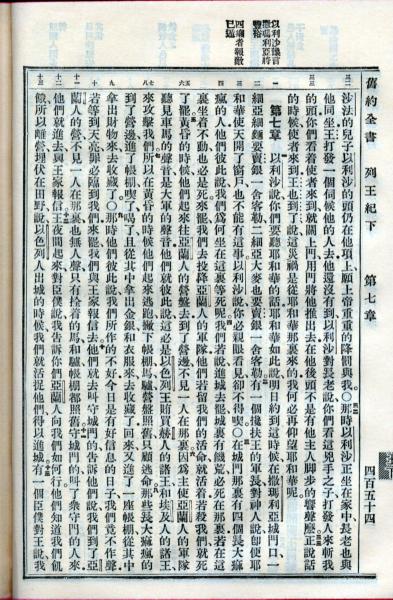 舊約全書 列王紀下 第七章 四百五十四
三二
沙法的兒子以利沙的頭仍在他項上願上帝重重的降罰與我○那時以利沙正坐在家中長老也與
他同坐王打發一個伺候他的人去他還沒有到以利沙對長老說你們看這兇手之子打發人來斬我
三三
的頭你們看着使者來到就關上門用門將他推出去在他後頭不是有他主人脚步的響聲麼正說話
的時候使者來到王也到了說這災禍是從耶和華那裏來的我何必再仰望耶和華呢
以利沙讖言
撒瑪利亞將
豐裕
一
第七章 以利沙說你們要聽耶和華的話耶和華如此說明日約到這時候在撒瑪利亞城門口一
二
細亞細麵要賣銀一舍客勒二細亞大麥也要賣銀一舍客勒有一個攙扶王的軍長對神人說即便耶
三
和華使天開了窗戶也不能有這事以利沙說你必親眼看見卻不得喫○在城門那裏有四個長大痲
四癩者報敵
已遁
四
瘋的人他們彼此說我們爲何坐在這裏等死呢我們若說進城去罷城裏有饑荒必死在那裏若在這
裏坐着不動也必是死來罷我們去投降亞蘭人的軍隊他們若留我們的活命就活着若殺我們就死
五六
了罷黃昏的時候他們起來往亞蘭人的營盤去到了營邊不見一人在那裏因爲主使亞蘭人的軍隊
聽見車馬的聲音是大軍的聲音他們就彼此說這必是以色列王賄買赫人的諸王和埃及人的諸王
七八
來攻擊我們所以在黃昏的時候他們起來逃跑撇下帳棚馬驢營盤照舊只顧逃命那些長大痲瘋的
到了營邊進了帳棚喫了喝了且從其中拿出金銀和衣服來去收藏了回來又進了一座帳棚從其中
九
拿出財物來去收藏○那時他們彼此說我們所作的不好今日是有好信息的日子我們竟不作聲
十
若等到天亮罪必臨到我們來罷我們與王家報信去他們就去叫守城門的告訴他們說我們到了亞
十一
蘭人的營不見一人在那裏也無人聲只有拴着的馬和驢帳棚都照舊守城門的叫了衆守門的人來
十二
他們就進去與王家報信王夜間起來對臣僕說我告訴你們亞蘭人向我們如何行他們知道我們飢
十三
餓所以離營埋伏在田野說以色列人出城的時候我們就活捉他們得以進城有一個臣僕對王說我